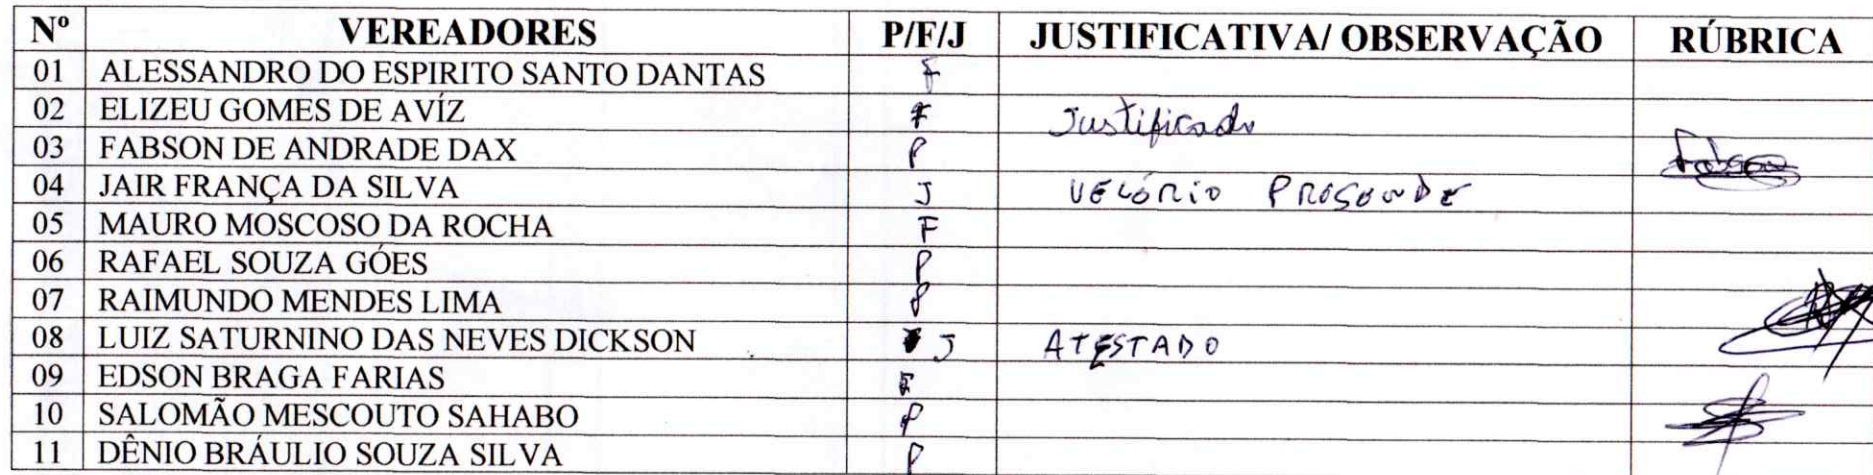 Nº VEREADORES P/F/J JUSTIFICATIVA/ OBSERVAÇÃO RÚBRICA
01 ALESSANDRO DO ESPIRITO SANTO DANTAS F
02 ELIZEU GOMES DE AVÍZ F Justificado
03 FABSON DE ANDRADE DAX P Fabson
04 JAIR FRANÇA DA SILVA J VELÓRIO
05 MAURO MOSCOSO DA ROCHA F
06 RAFAEL SOUZA GÓES P
07 RAIMUNDO MENDES LIMA P
08 LUIZ SATURNINO DAS NEVES DICKSON J ATESTADO
09 EDSON BRAGA FARIAS F
10 SALOMÃO MESCOUTO SAHABO P
11 DÊNIO BRÁULIO SOUZA SILVA P